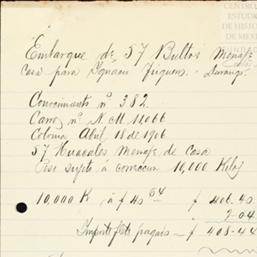 CENTRO
ESTUD
DE HISTO
DE MEX
Embarque de 57 Bultos Menaje
Casa para Ignacio
Conocimiento nº 382.
Carro nº N. M 11066
Colonia Abril 18 de 1906.
57 Huacales Menaje de Casa
Peso sujeto á correccion 10,000 Kilos
10,000 K á $ 40 64 $ 406.40
2.04
Importe flete pagado — $ 408.44